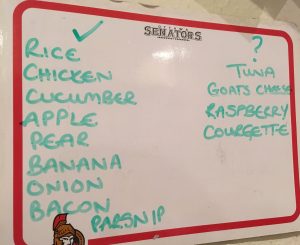 OTTAWA
SENATORS
✓
RICE
CHICKEN
CUCUMBER
APPLE
PEAR
BANANA
ONION
BACON
PARSNIP
?
TUNA
GOATS CHEESE
RASPBERRY
COURGETTE